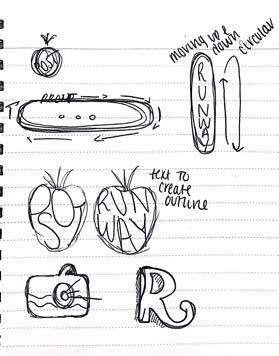 moving up &
down
circular
RUNWAY
text to
create
outline
PO
SO
RUN
WAY
R